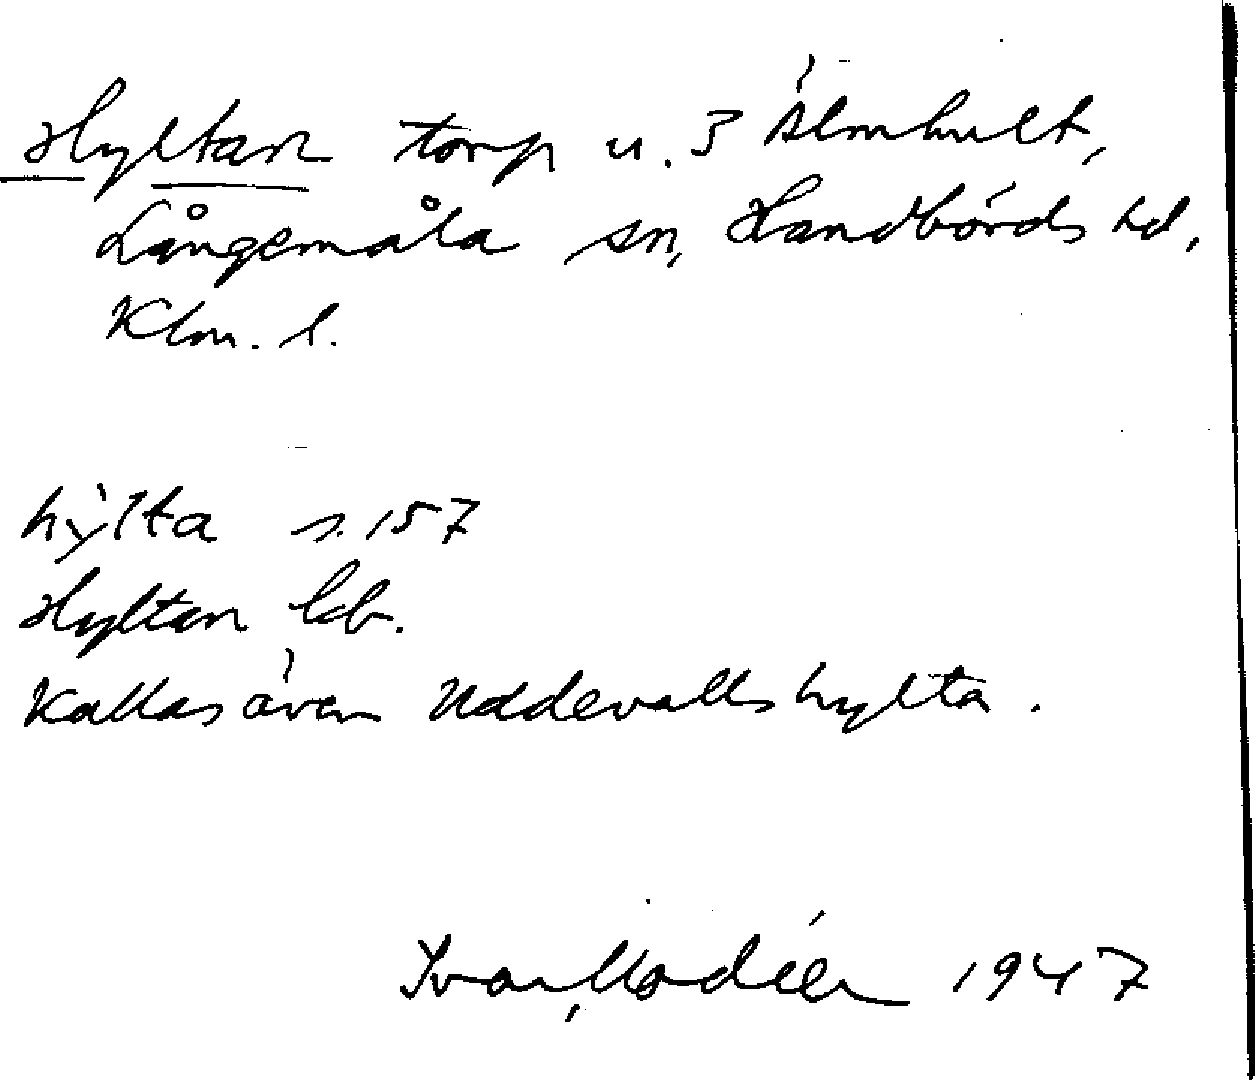 Hyltan torp u. 3 Älmhult,
Långemåla sn, Handbörds hd,
Klm. l.
hỳlta s. 157
Hyltan kb.
Kallas även Uddevallshylta.
Ivar Modéer 1947